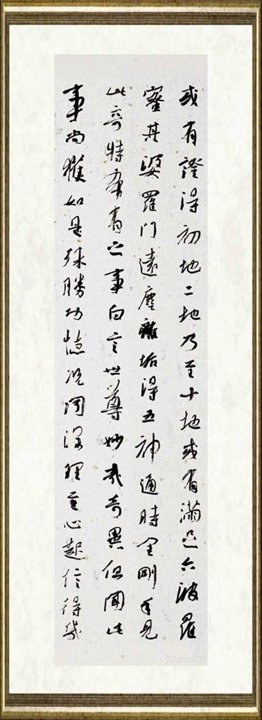 或有證得初地二地乃至十地或有滿足六波羅
蜜其婆羅門遠塵離垢得五神通時金剛手見
此奇特希有之事白言世尊妙哉奇異但聞此
事尚獲如是殊勝功德況聞深理至心起信得幾